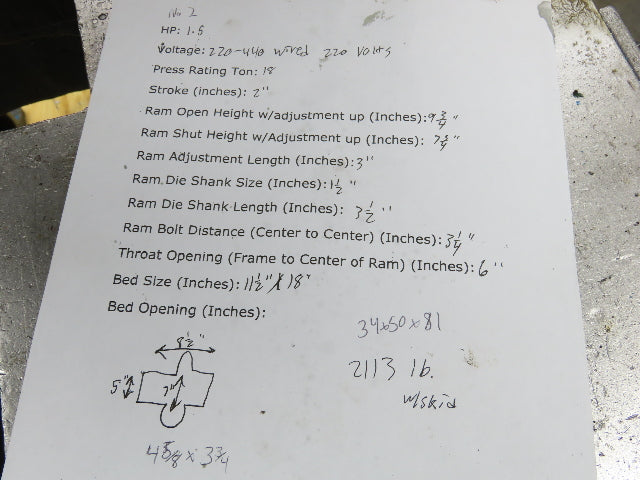 No 2
HP: 1.5
Voltage: 220-440 wired 220 Volts
Press Rating Ton: 18
Stroke (inches): 2"
Ram Open Height w/adjustment up (Inches): 9 3/4"
Ram Shut Height w/Adjustment up (Inches): 7 3/4"
Ram Adjustment Length (Inches): 3"
Ram Die Shank Size (Inches): 1 1/2"
Ram Die Shank Length (Inches): 3 1/2"
Ram Bolt Distance (Center to Center) (Inches): 3 1/4"
Throat Opening (Frame to Center of Ram) (Inches): 6"
Bed Size (Inches): 11 1/2" X 18"
Bed Opening (Inches):
34x50x81
8 1/2"
2113 lb.
5"
7"
w/skid
4 5/8 x 3 3/4